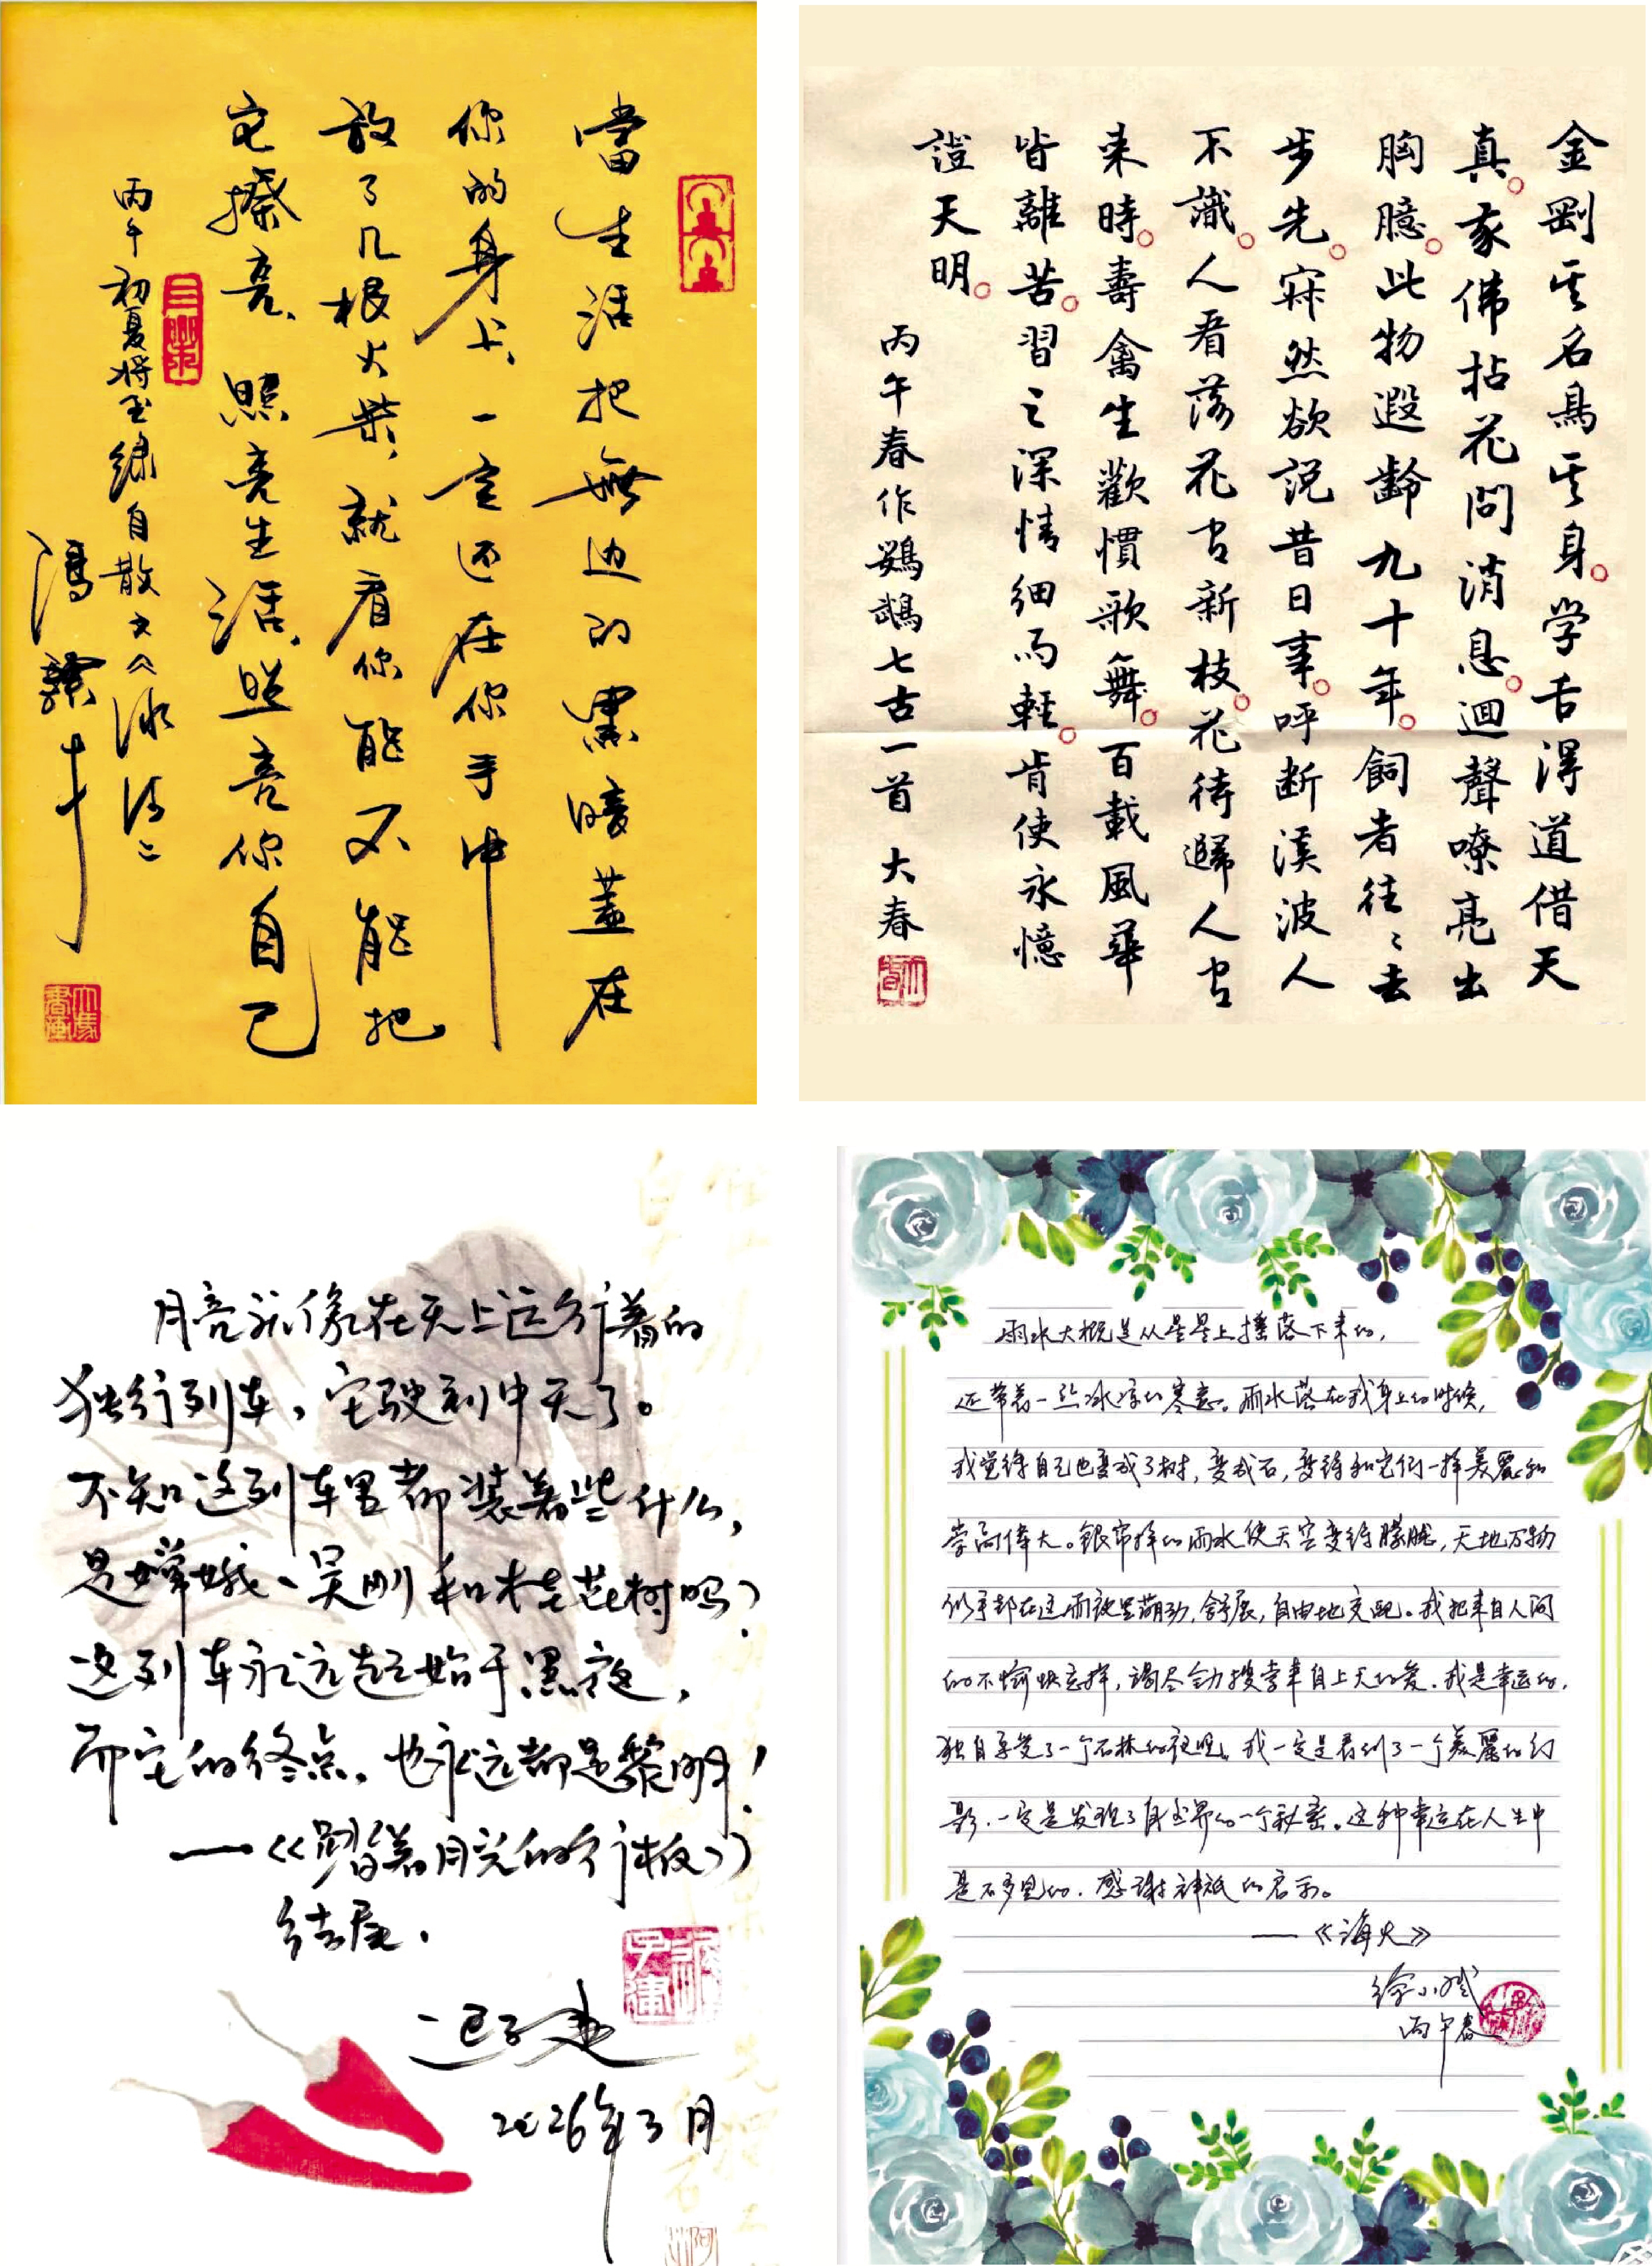 當生活把無边的黑暗蓋在
你的身上、一定还在你手中
放了几根火柴，就看你能不能把
它擦亮、照亮生活、照亮你自己
丙午初夏将至 録自散文《冰清》
馮驥才
金剛其名鳥其身。学舌得道借天
真。家佛拈花問消息。迴聲嘹亮出
胸臆。此物遐齡九十年。飼者往〻去
步先。寂然欲説昔日事。呼断溪波人
不識。人看落花官新枝。花待歸人官
来時。壽禽生歡慣歌舞。百載風華
皆離苦。習之深情細而軽。肯使永憶
證天明。
丙午春作鸚鵡七古一首 大春
月亮就像在天上运行着的
独行列车，它驶到中天了。
不知这列车里都装着些什么，
是嫦娥、吴刚和桂花树吗？
这列车永远起始于黑夜，
而它的终点，也永远都是黎明！
——《踏着月光的行板》
结尾．
迟子建
2026年3月
雨水大概是从星星上撞落下来的，
还带着一丝冰凉的寒意。雨水落在我身上的时候，
我觉得自己也变成了树，变成石，变得和它们一样美丽和
崇高伟大。银帘样的雨水使天空变得朦胧，天地万物
似乎都在这雨夜里萌动，舒展，自由地交配。我把来自人间
的不愉快忘掉，竭尽全力搜索来自上天的爱。我是幸运的，
独自享受了一个石林的夜晚。我一定是看到了一个美丽的幻
影，一定是发现了自然界的一个秘密。这种幸运在人生中
是不多见的，感谢神祇的启示。
——《海火》
徐小斌
丙午春